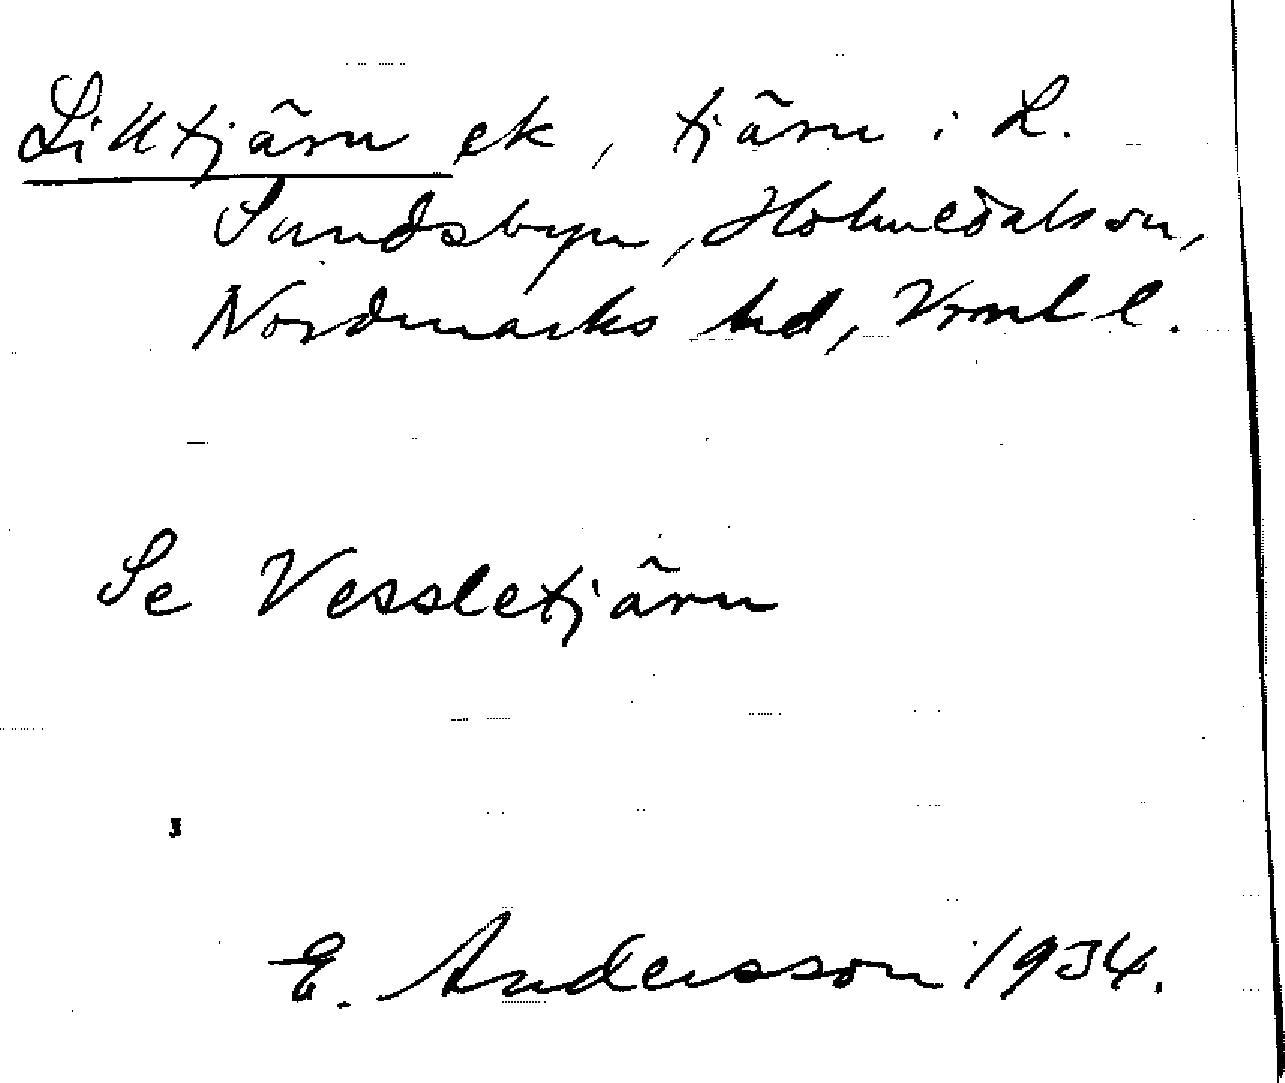 Lilltjärn ek, tjärn i L.
Sundsbyn, Holmedalsson,
Nordmarks hd, Vrml l.
Se Vessletjärn
E. Andersson 1934.